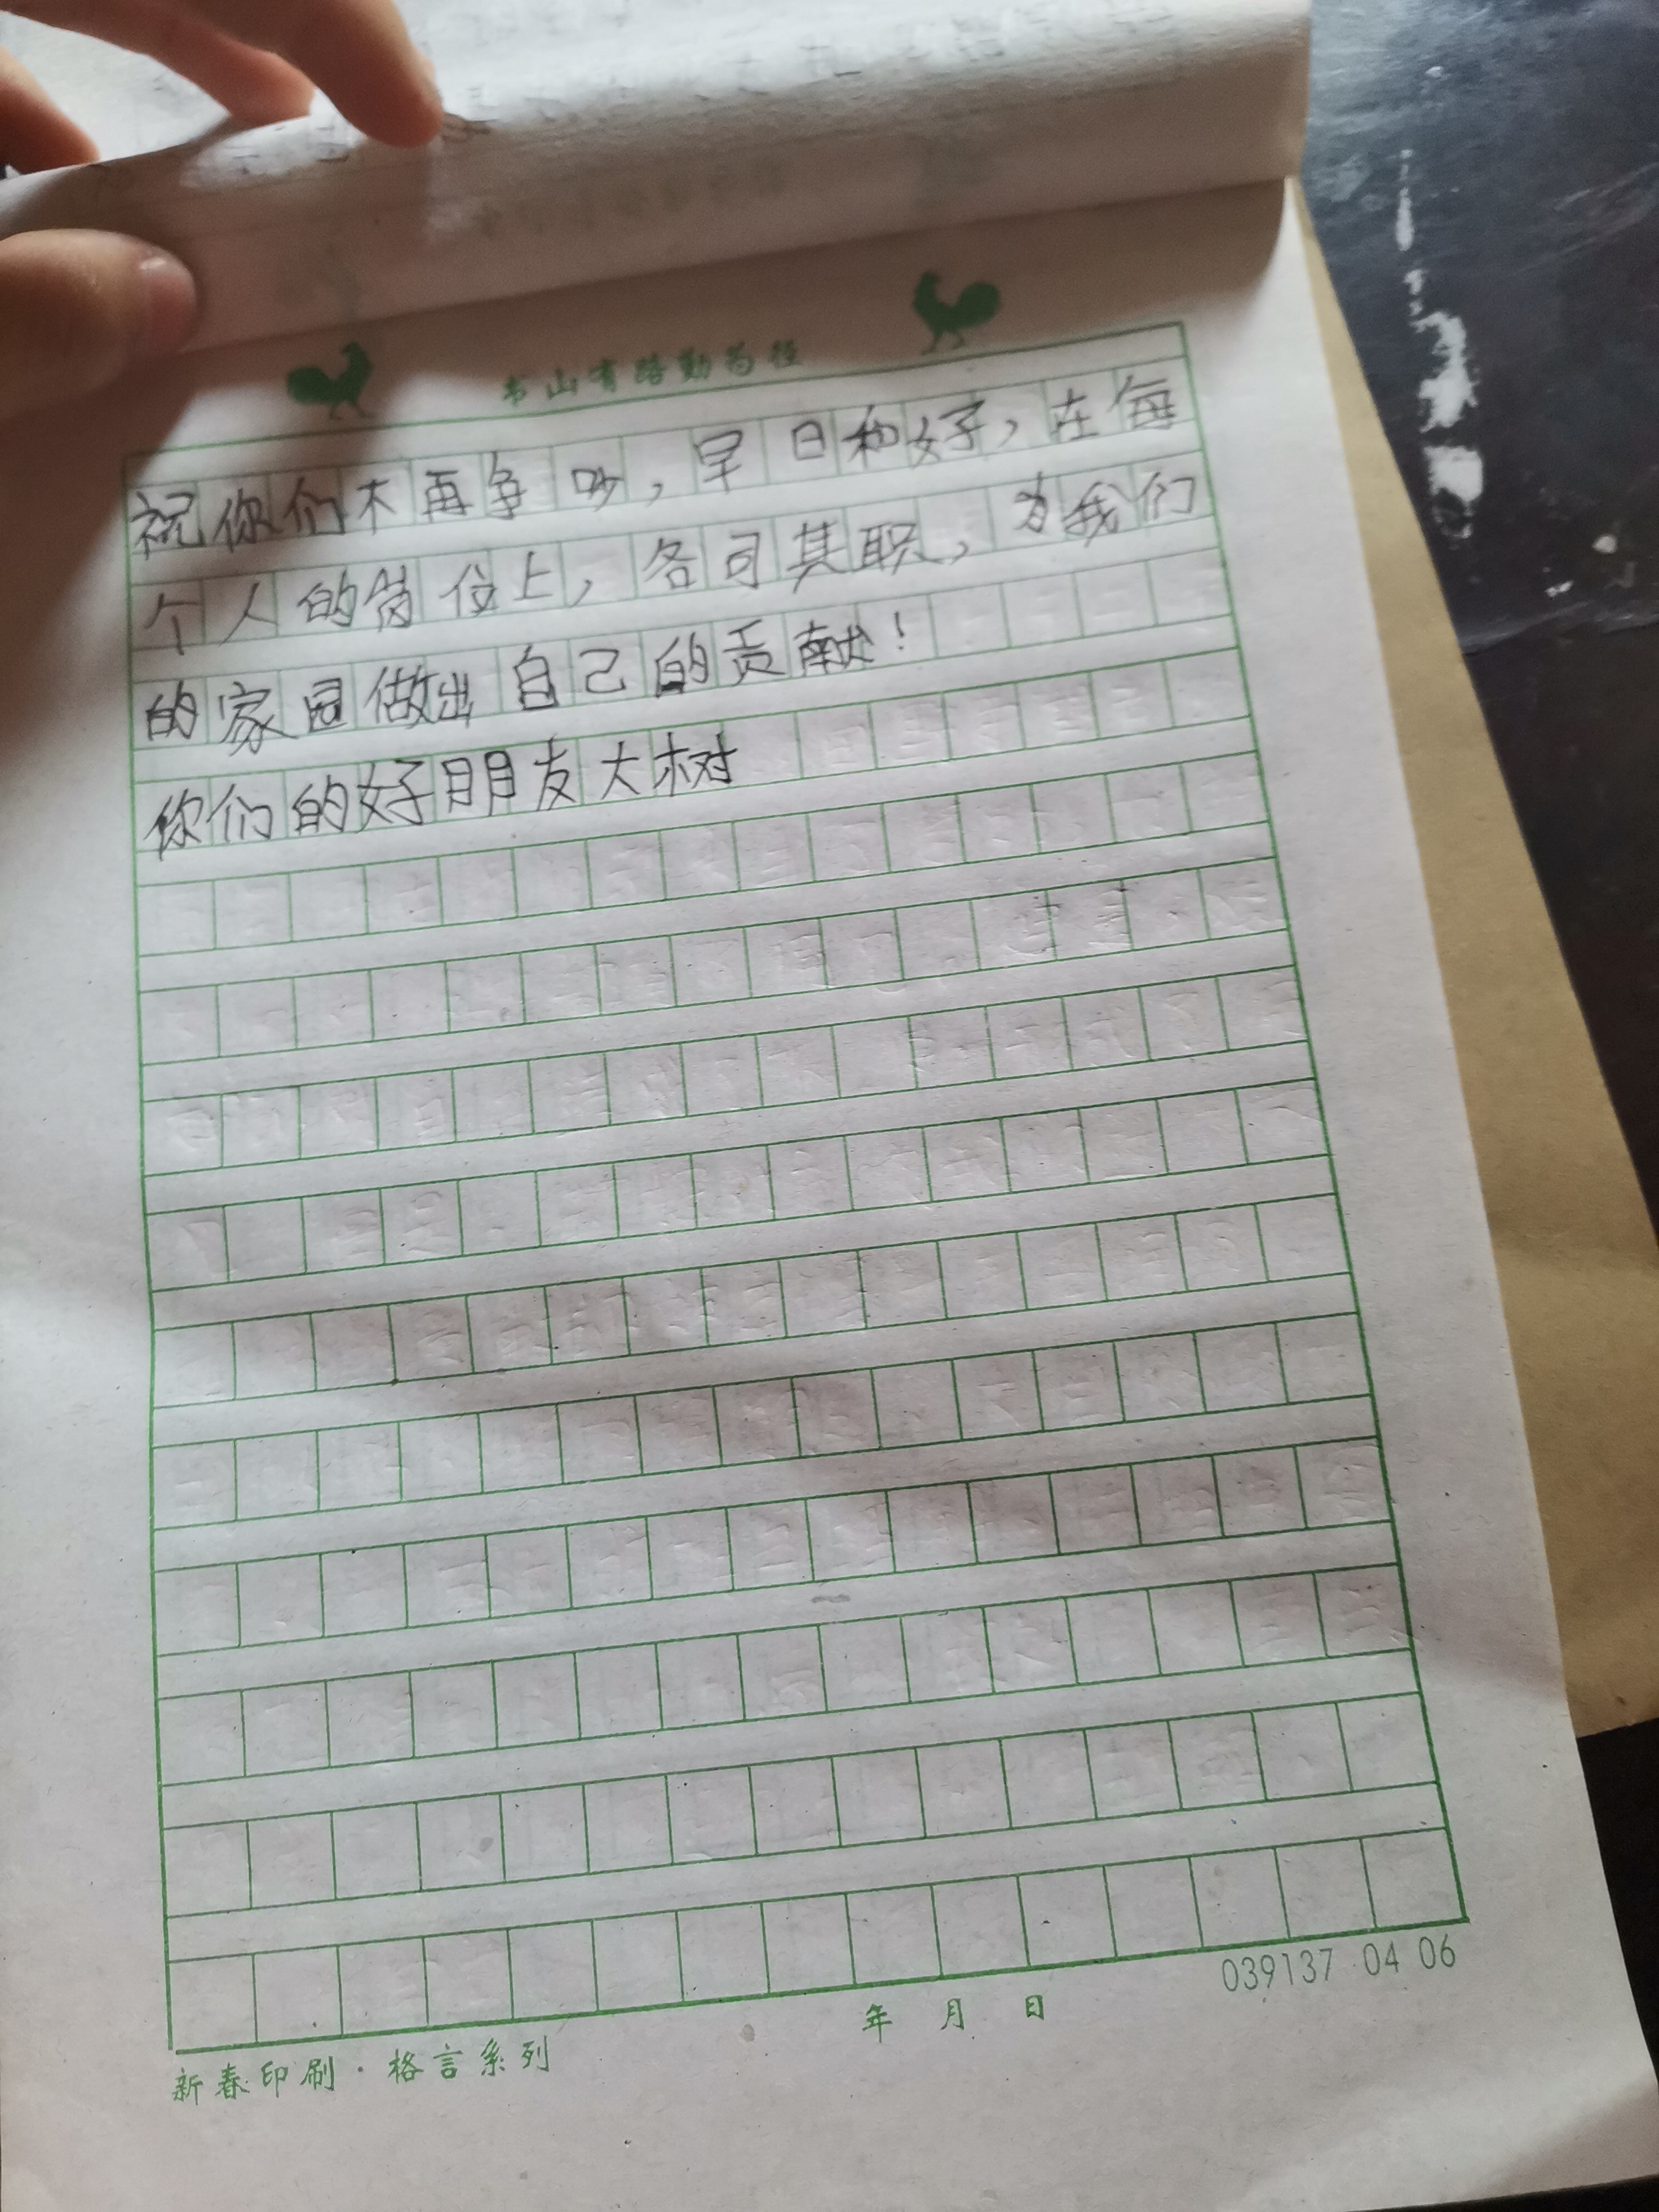 书山有路勤为径
祝你们不再争吵，早日和好，在每
个人的岗位上，各司其职，为我们
的家园做出自己的贡献！
你们的好朋友大树
039137 04 06
年 月 日
新春印刷·格言系列